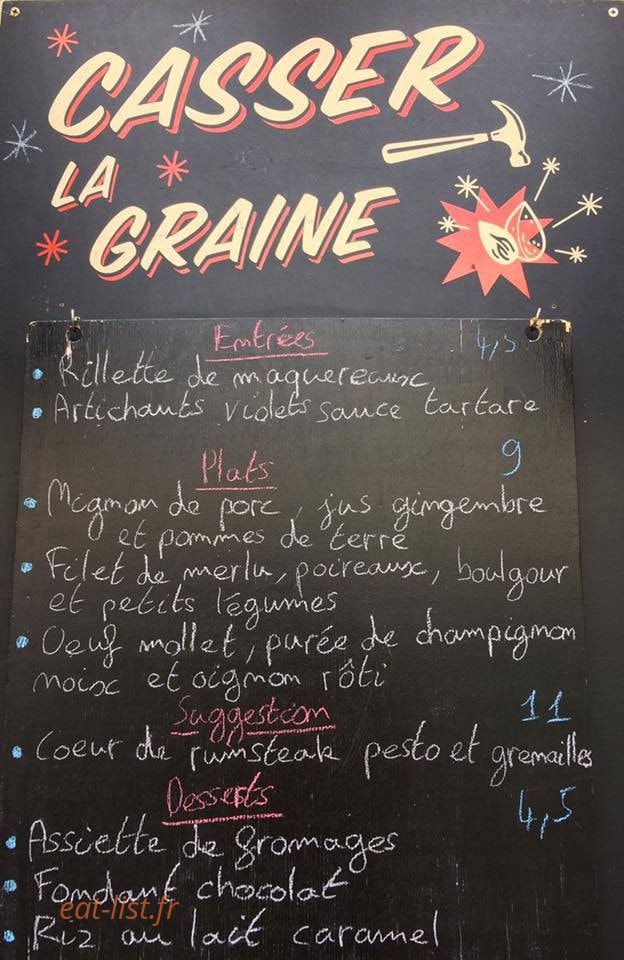 CASSER
LA
GRAINE
Entrées 4,5
Rillette de maquereaux
Artichauts violets sauce tartare
Plats 9
Mignon de porc, jus gingembre
et pommes de terre
Filet de merlu, poireaux, boulgour
et petits légumes
Oeuf mollet, purée de champignon
noix et oignon rôti
Suggestion 11
Coeur de rumsteak pesto et grenailles
Desserts 4,5
Assiette de fromages
Fondant chocolat
eat-list.fr
Riz au lait caramel